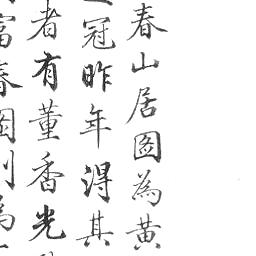 春山居圖為黃
冠昨年得其
者有董香光
富春圖則為